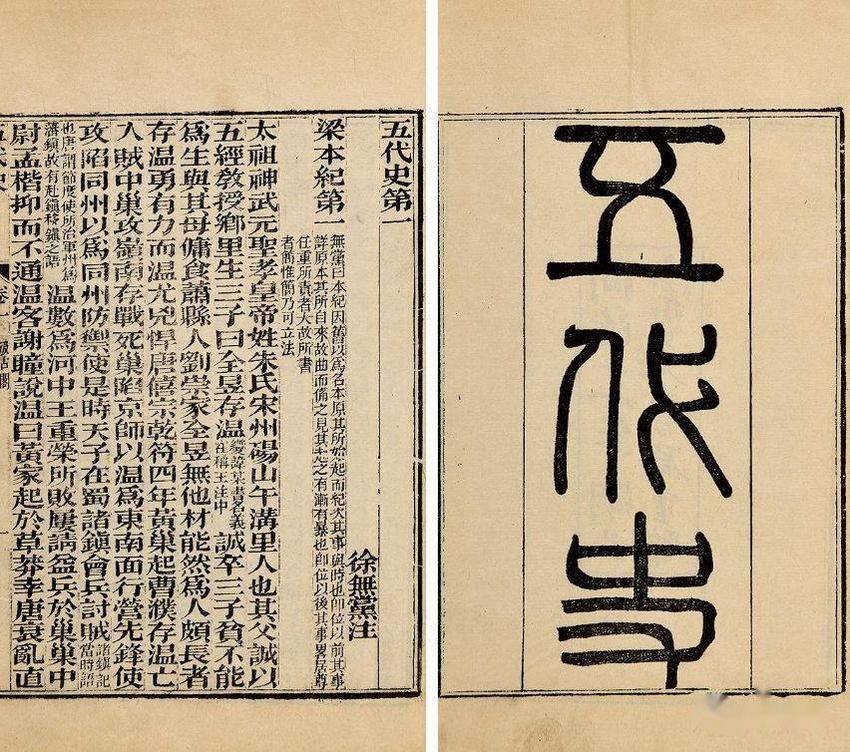 五代史
五代史第一
徐無黨注
梁本紀第一
無黨曰本紀因舊以爲名本原其所始起而紀次其事與時也即位以前其事
詳原本其所自來故曲而備之見其起之有漸有暴也即位以後其事畧居尊
任重所責者大故所書
者簡惟簡乃可立法
太祖神武元聖孝皇帝姓朱氏宋州碭山午溝里人也其父誠以
五經教授鄉里生三子曰全昱存温變諱某書名義在稱王注中誠卒三子貧不能
爲生與其母傭食蕭縣人劉崇家全昱無他材能然爲人頗長者
存温勇有力而温尤兇悍唐僖宗乾符四年黃巢起曹濮存温亡
入賊中巢攻嶺南存戰死巢陷京師以温爲東南面行營先鋒使
攻陷同州以爲同州防禦使是時天子在蜀諸鎮會兵討賊諸鎮記當時語
也唐謂節度使所治軍州爲藩鎮故有赴鎮移鎮之語温數爲河中王重榮所敗屢請益兵於巢巢中
尉孟楷抑而不通温客謝瞳說温曰黃家起於草莽幸唐衰亂直
五代史